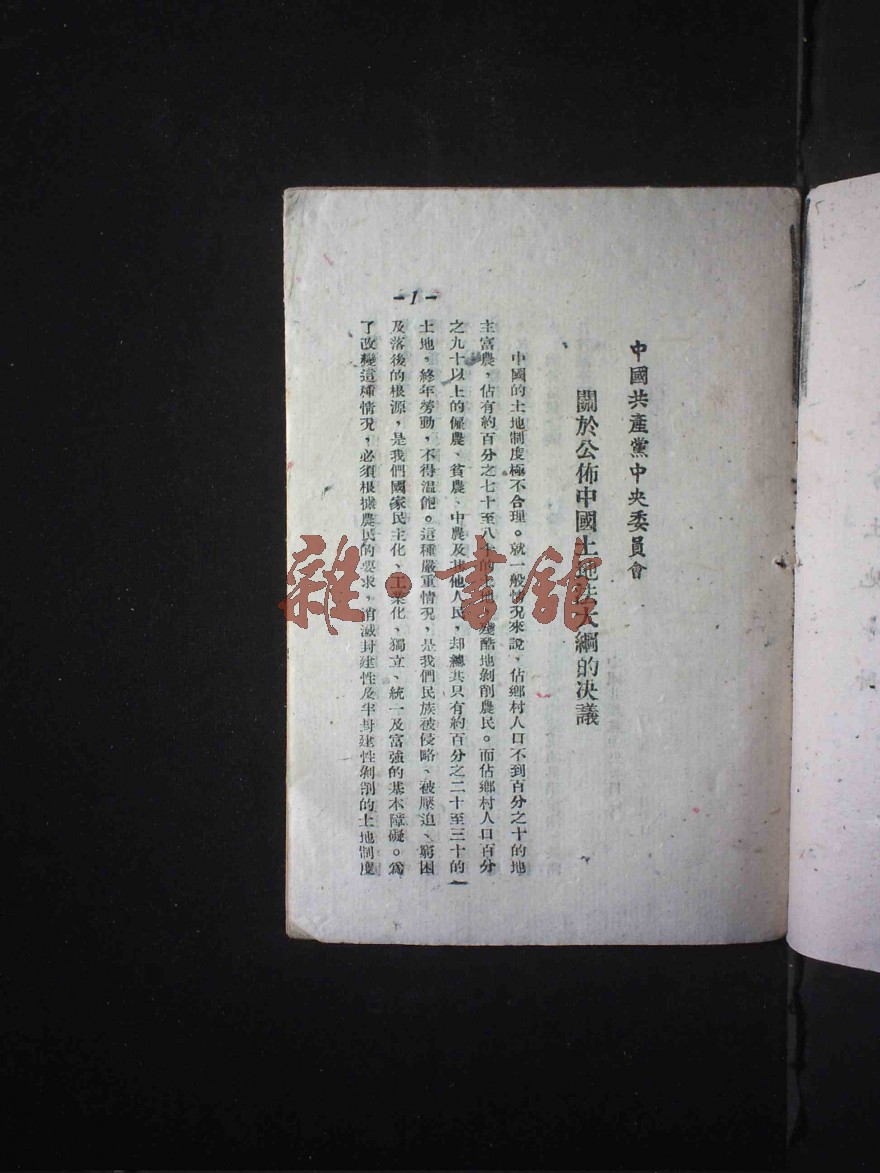 中國共產黨中央委員會
關於公佈中國土地法大綱的决議
中國的土地制度極不合理。就一般情况來說，佔鄉村人口不到百分之十的地
主富農，佔有約百分之七十至八十的土地，殘酷地剝削農民。而佔鄉村人口百分
之九十以上的僱農、貧農、中農及其他人民，却總共只有約百分之二十至三十的
土地，終年勞動，不得溫飽。這種嚴重情况，是我們民族被侵略、被壓迫、窮困
及落後的根源，是我們國家民主化、工業化、獨立、統一及富強的基本障礙。爲
了改變這種情况，必須根據農民的要求，消滅封建性及半封建性剝削的土地制度
-1-
雜·書館